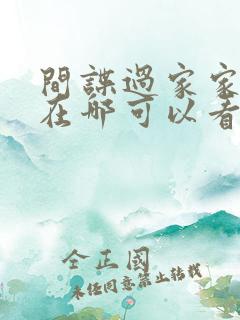 間諜過家家
在哪可以看
全正國
未经同意禁止转载